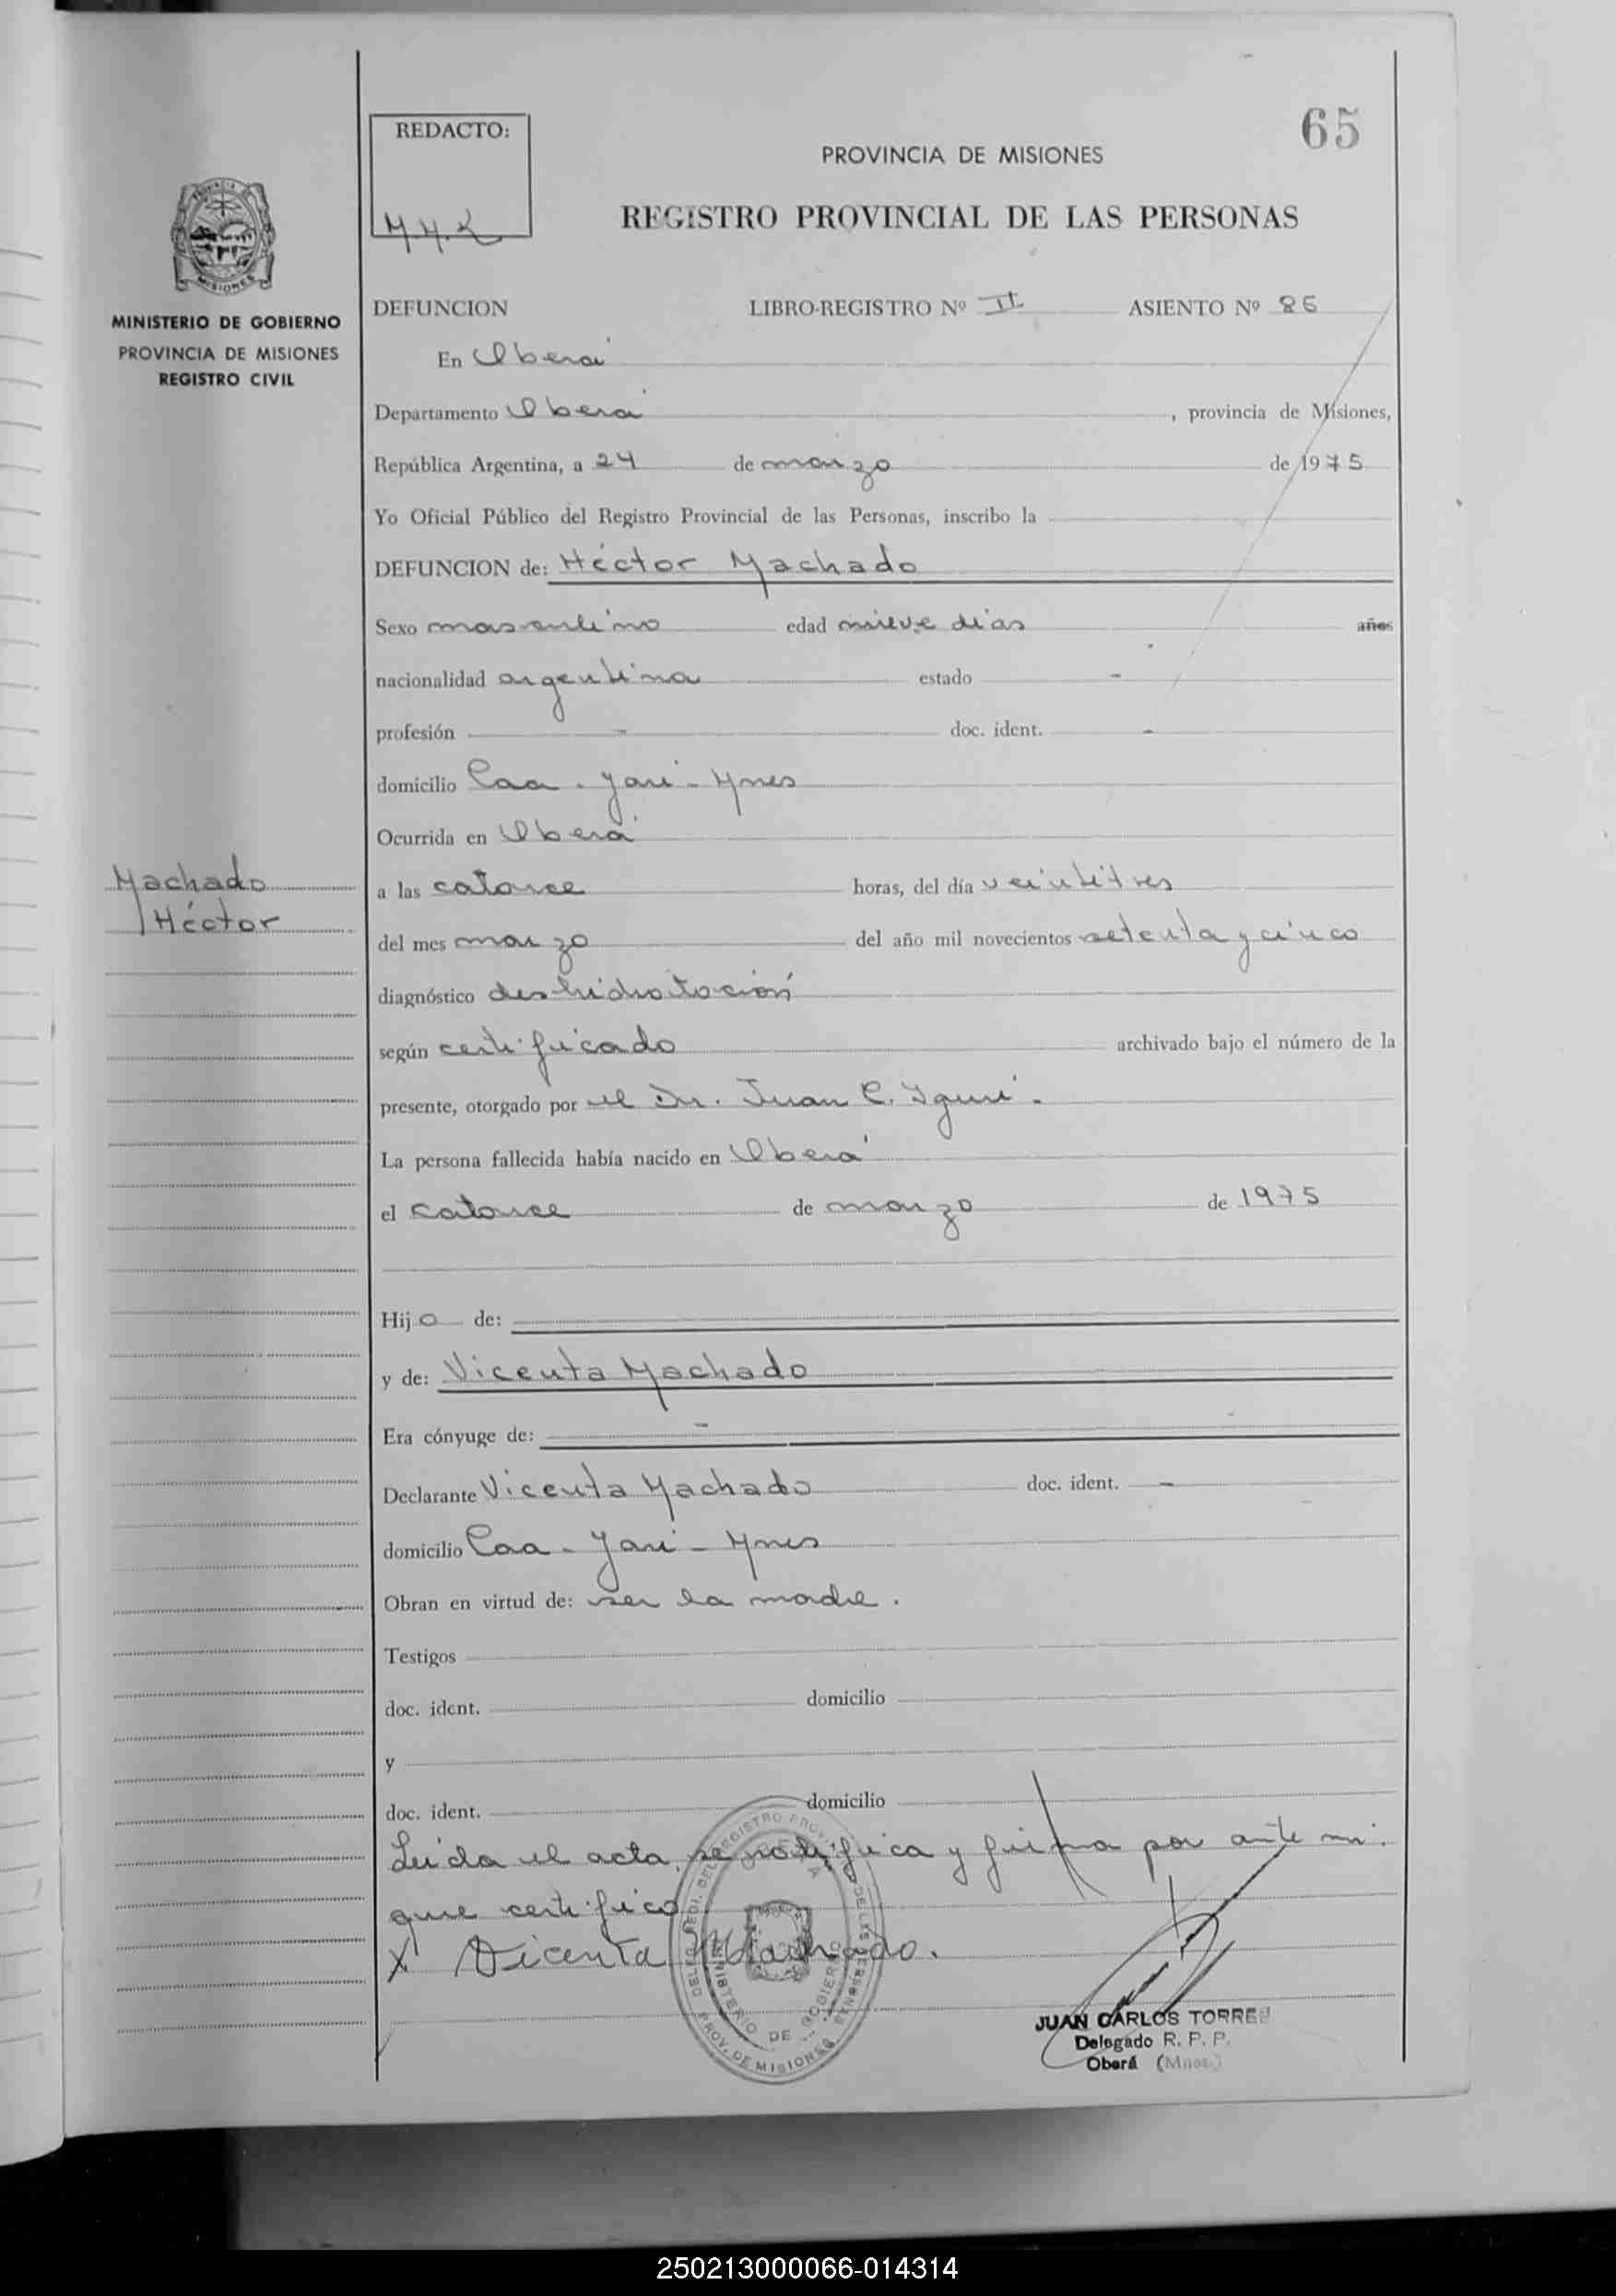 65
REDACTO:
PROVINCIA DE MISIONES
REGISTRO PROVINCIAL DE LAS PERSONAS
MINISTERIO DE GOBIERNO
PROVINCIA DE MISIONES
REGISTRO CIVIL
DEFUNCION LIBRO-REGISTRO Nº II ASIENTO Nº 86
En Oberá
Departamento Oberá, provincia de Misiones,
República Argentina, a 24 de marzo de 1975
Yo Oficial Público del Registro Provincial de las Personas, inscribo la
DEFUNCION de: Héctor Machado
Sexo masculino edad nueve días años
nacionalidad argentina estado -
profesión - doc. ident. -
domicilio Caa-Yarí-Mnes
Ocurrida en Oberá
Machado
Héctor
a las catorce horas, del día veintitres
del mes marzo del año mil novecientos setenta y cinco
diagnóstico deshidratación
según certificado archivado bajo el número de la
presente, otorgado por el Dr. Juan C.
La persona fallecida había nacido en Oberá
el catorce de marzo de 1975
Hijo de:
y de: Vicenta Machado
Era cónyuge de: -
Declarante Vicenta Machado doc. ident. -
domicilio Caa-Yari-Mnes
Obran en virtud de: ser la madre.
Testigos
doc. ident. domicilio
y
doc. ident. domicilio
Leida el acta, se ratifica y firma por ante mí
que certifico
X Vicenta Machado.
MINISTERIO DE GOBIERNO
PROV. DE MISIONES
JUAN CARLOS TORRES
Delegado R. P. P.
Oberá (Mnes.)
250213000066-014314